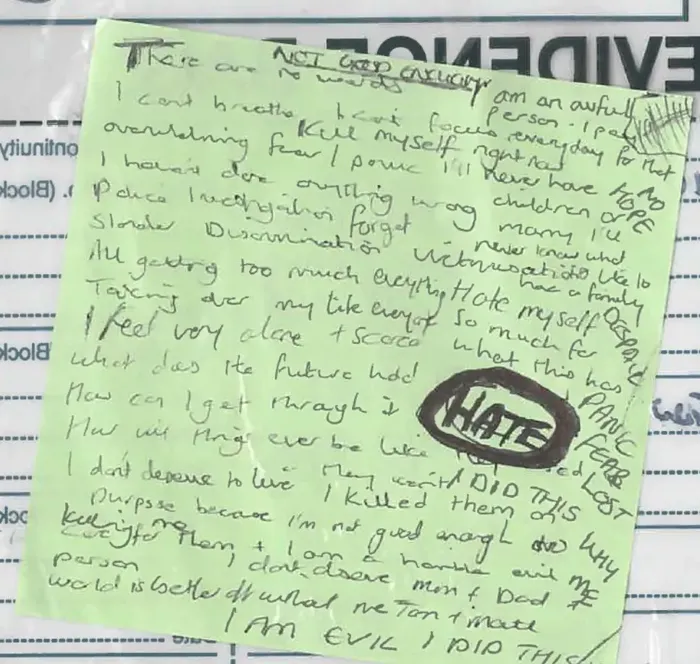 EVIDENCE
NOT GOOD ENOUGH
There are no words
I am an awful person - I pay
I can't breathe I can't focus everyday for that
overwhelming fear / panic
Kill myself right now
I'll never have NO HOPE
I haven't done anything wrong
children or marry I'll
Police Investigation forget
never know what
Slander Discrimination Victimisation
it's like to have a family
All getting too much everything Hate myself DESPAIR
Taking over my life everyday So much for
I feel very alone + scared what this has
what does the future hold PANIC
How can I get through it FEAR
HATE
How will things ever be like LOST
I don't deserve to live They went I DID THIS
I killed them on
purpose because I'm not good enough WHY ME
Killing me
care for them + I am a horrible evil
person I don't deserve Mum + Dad
world is better off without me
I AM EVIL I DID THIS
ontinuity
(Block
Block
ock